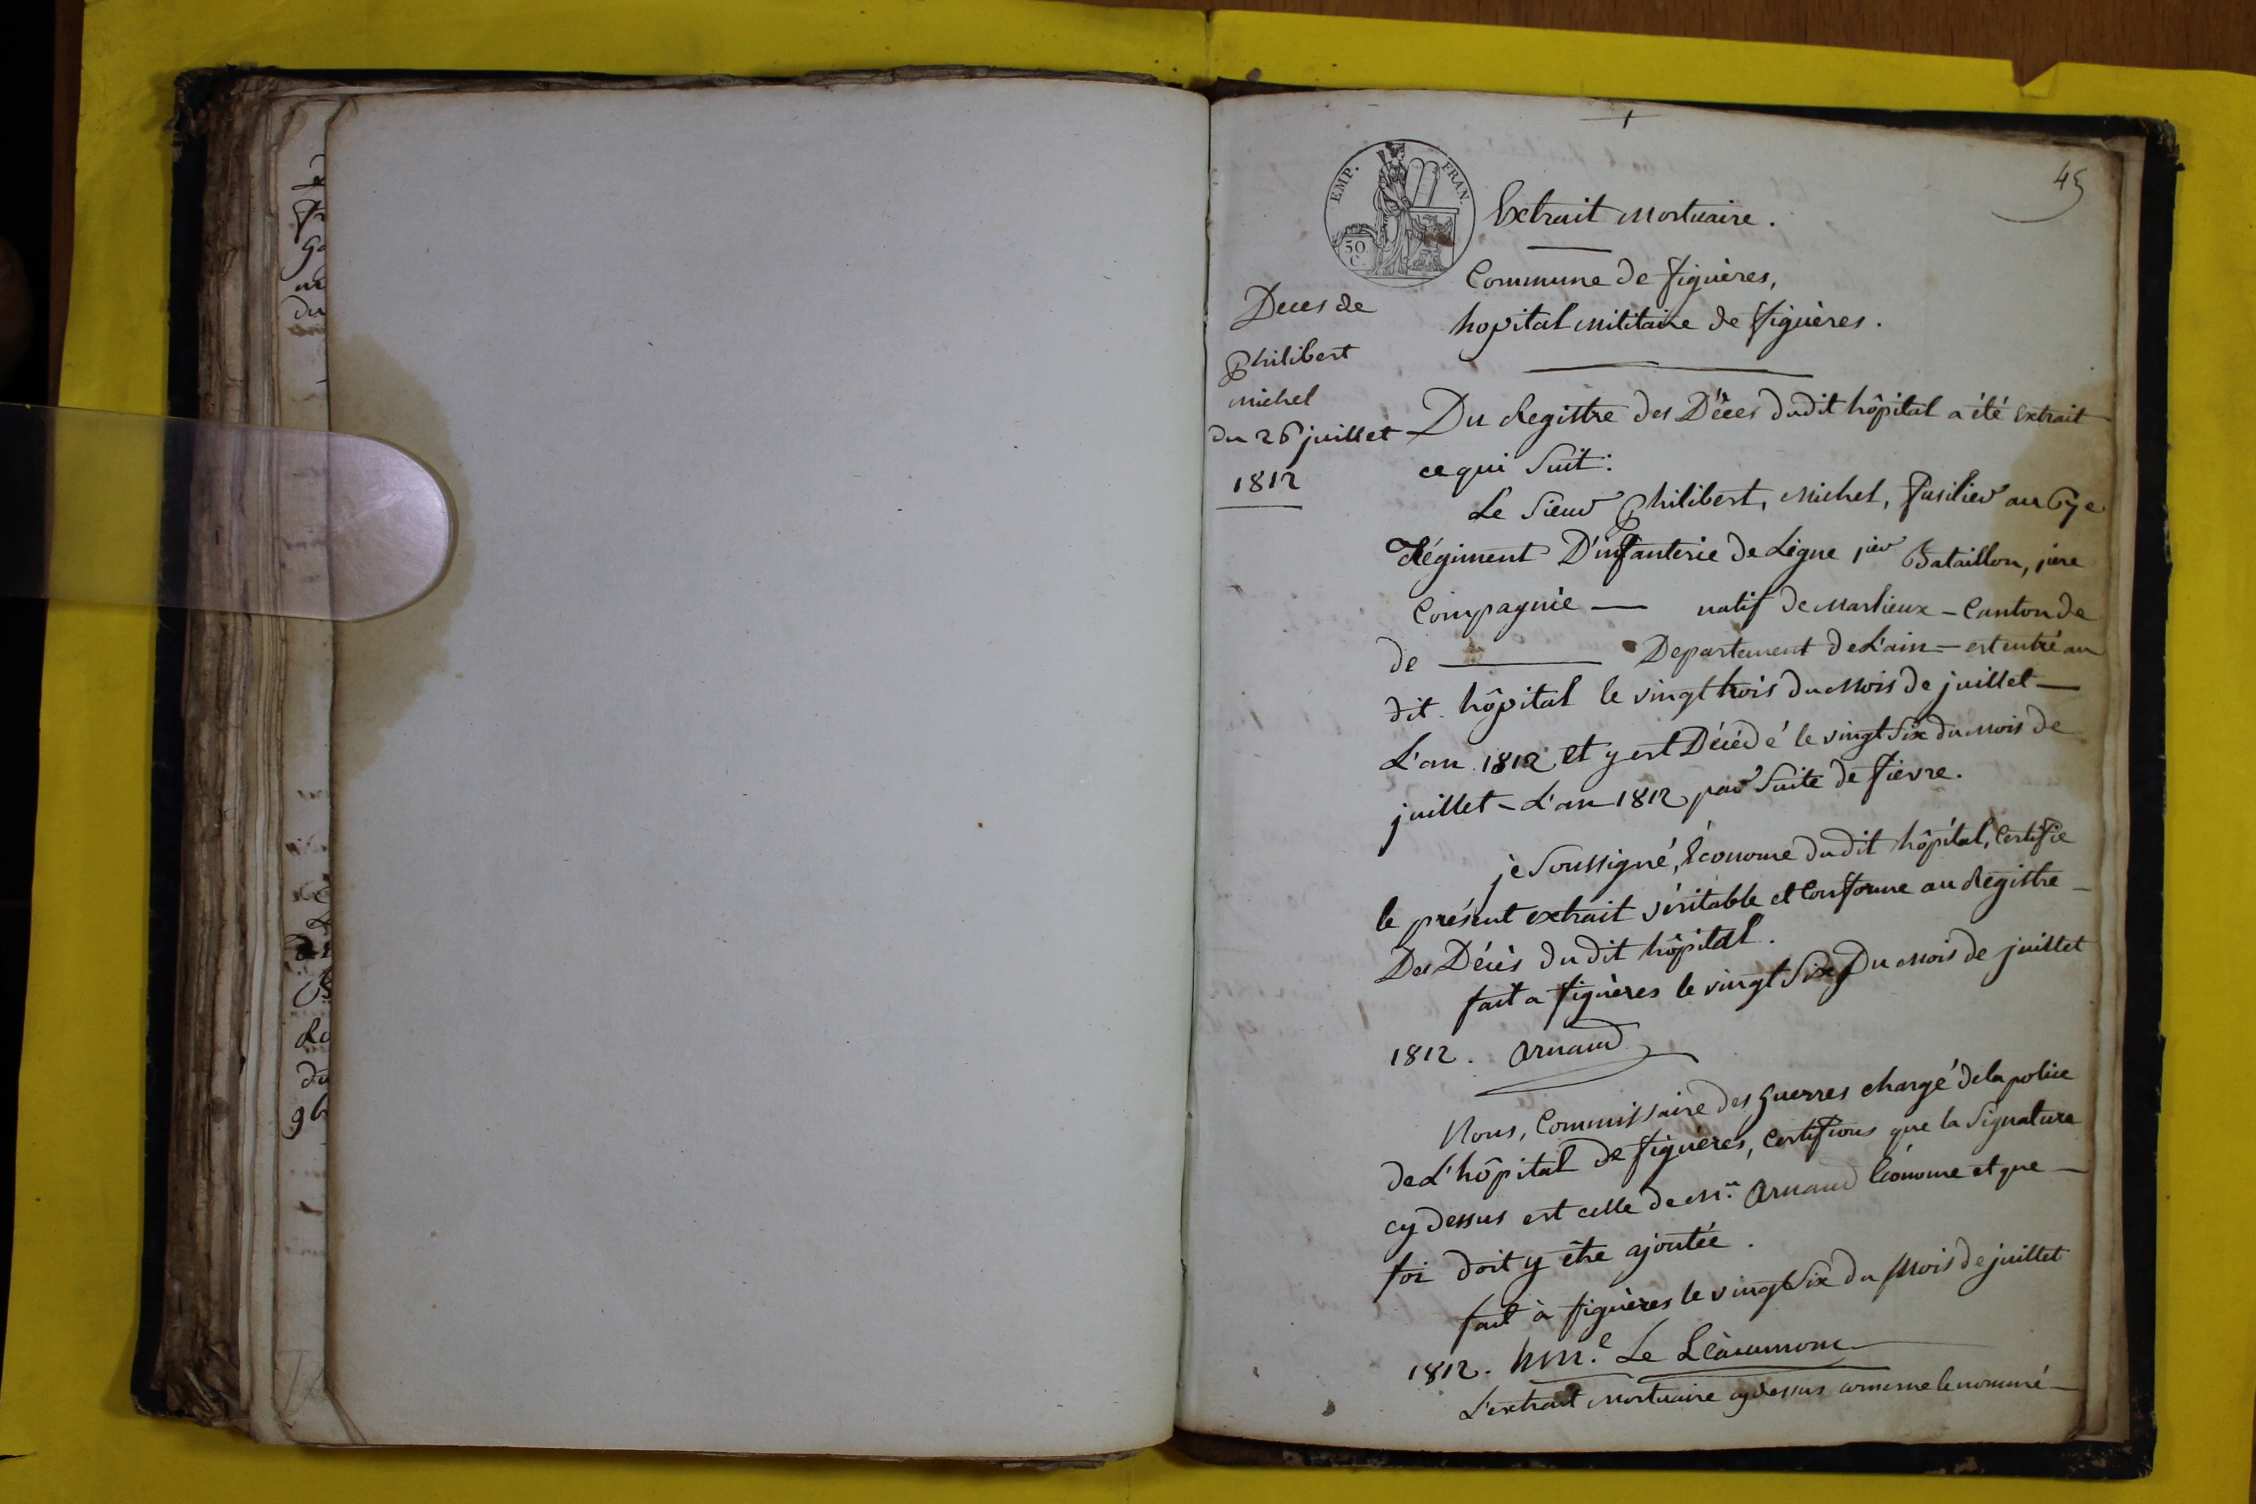 45
EMP. FRAN.
50
C.
Extrait Mortuaire.
Commune de figuères,
hopital Militaire de figuères.
Deces de
Philibert
Michel
du 26 juillet
1812
Du Registre des Décès dudit hôpital a été Extrait
ce qui Suit:
Le Sieur Philibert, Michel, Fusilier au 67e
Régiment D'infanterie de Ligne 1ier Bataillon, 1iere
Compagnie — natif de Marlieux - Canton de
de — Departement de L'ain - est entré au
dit hôpital le vingt trois du Mois de juillet —
L'an 1812 et y est Décédé le vingt Six du Mois de
juillet - L'an 1812 par Suite de fievre.
je Soussigné, Économe dudit hôpital, Certifie
le présent extrait véritable et Conforme au Registre —
Des Décès du dit hôpital.
fait a figuères le vingt Six Du Mois de juillet
1812. Arnaud
Nous, Commissaire des guerres chargé de la police
de L'hôpital de figuères, Certifions que la Signature
cy dessus est celle de Mr. Arnaud Économe et que —
foi doit y être ajoutée.
fait à figuères le vingt Six du Mois de juillet
1812. Le
L'extrait Mortuaire cydessus concerne le nommé —